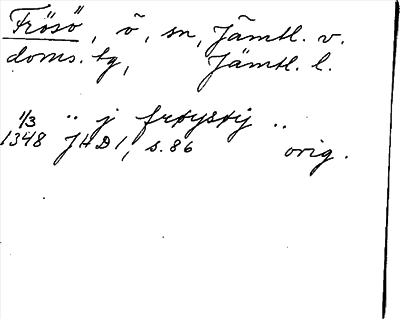 Frösö, ö, sn, Jämtl. v.
doms. tg, Jämtl. l.
1/3 .. j frøysøy ..
1348 JHD 1, s. 86 orig.